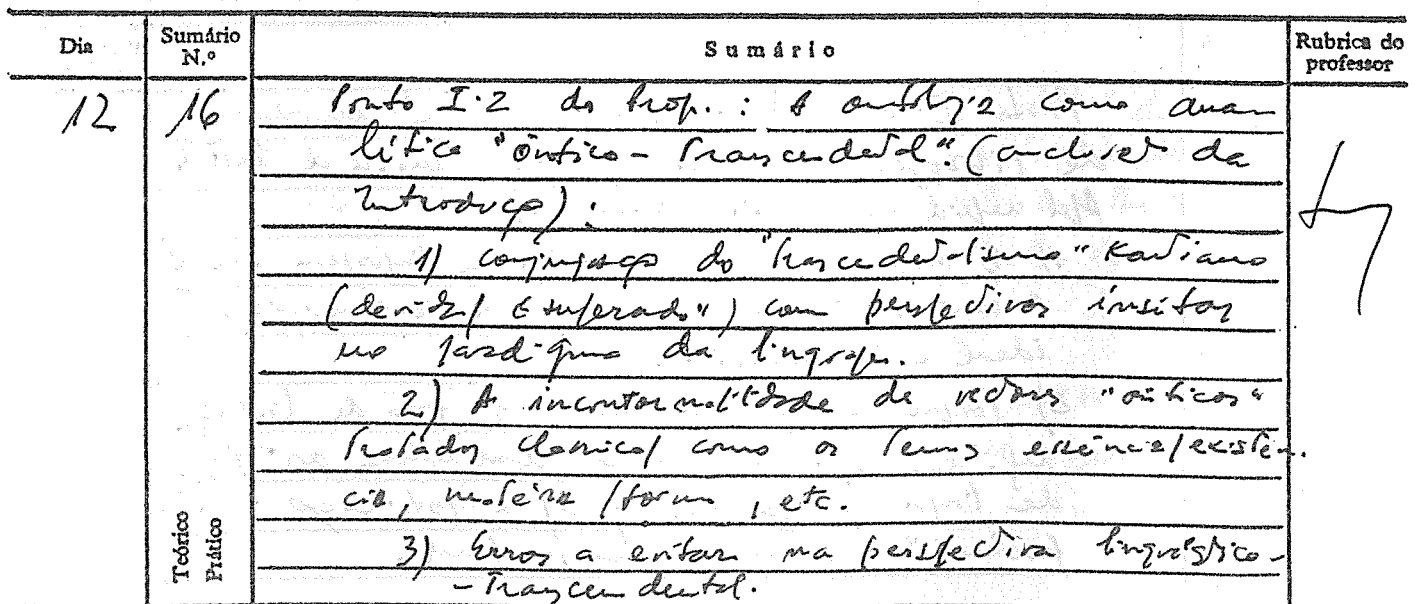 Dia Sumário N.º Sumário Rubrica do professor
12 16 Ponto I.2 do Prog. : A ontologia como ana
lítica "ôntico-transcendental". (conclusão da
Introdução) :
1) conjugação do "transcendentalismo" Kantiano
( "superado") com perspectivas ínsitas
no paradigma da linguagem.
2) A incontornabilidade de vectores "ônticos"
tratados classica/ como os temas essência/existên-
cia, matéria/forma, etc.
3) Erros a evitar na perspectiva linguístico-
-transcendental.
Teórico
Prático